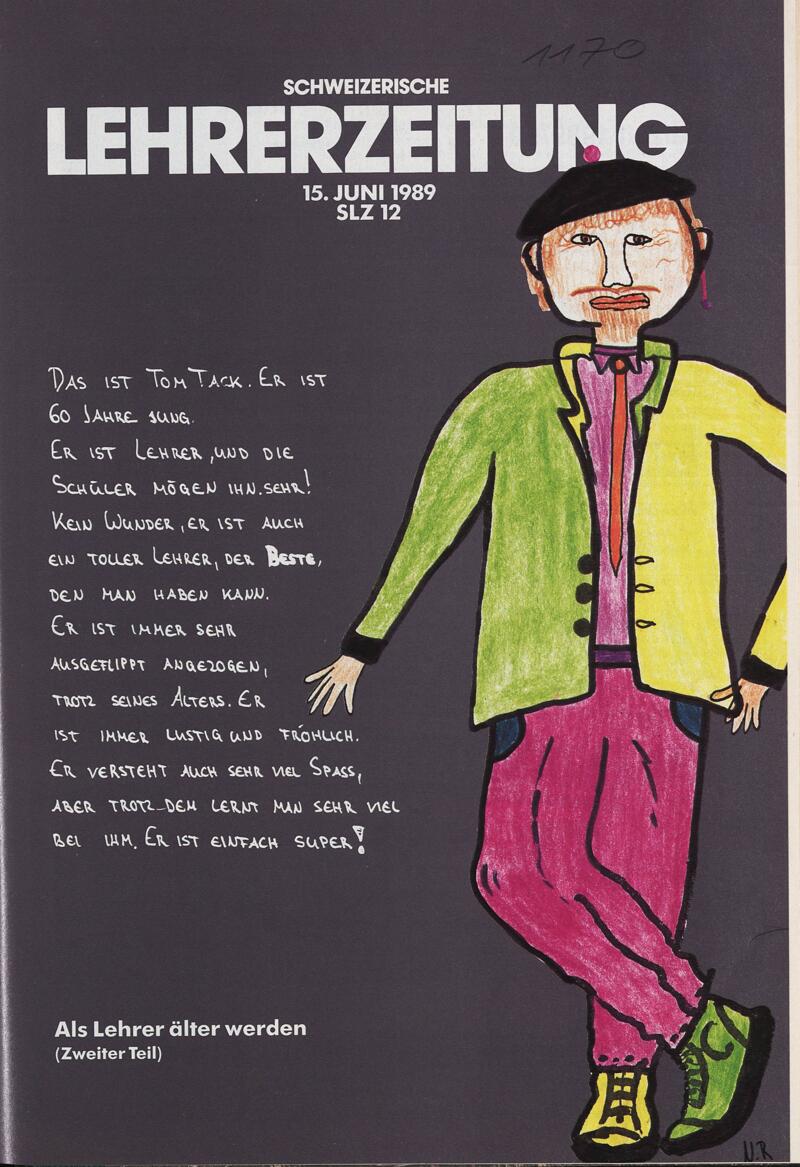 1170
SCHWEIZERISCHE
LEHRERZEITUNG
15. JUNI 1989
SLZ 12
DAS IST TOM TACK. ER IST
60 JAHRE JUNG.
ER IST LEHRER, UND DIE
SCHÜLER MÖGEN IHN.SEHR!
KEIN WUNDER, ER IST AUCH
EIN TOLLER LEHRER, DER BESTE,
DEN MAN HABEN KANN.
ER IST IMMER SEHR
AUSGEFLIPPT ANGEZOGEN,
TROTZ SEINES ALTERS. ER
IST IMMER LUSTIG UND FRÖHLICH.
ER VERSTEHT AUCH SEHR VIEL SPASS,
ABER TROTZ-DEM LERNT MAN SEHR VIEL
BEI IHM. ER IST EINFACH SUPER!
Als Lehrer älter werden
(Zweiter Teil)
N.R